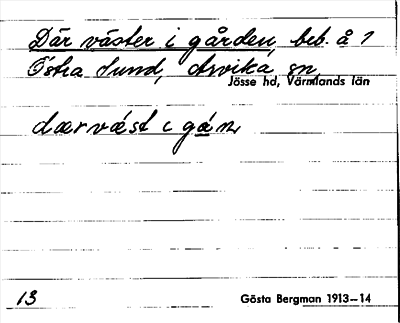 Där väster i gården, beb. å 1
Östra Sund, Arvika sn,
Jösse hd, Värmlands län
dærvǽst i gán,
13
Gösta Bergman 1913–14